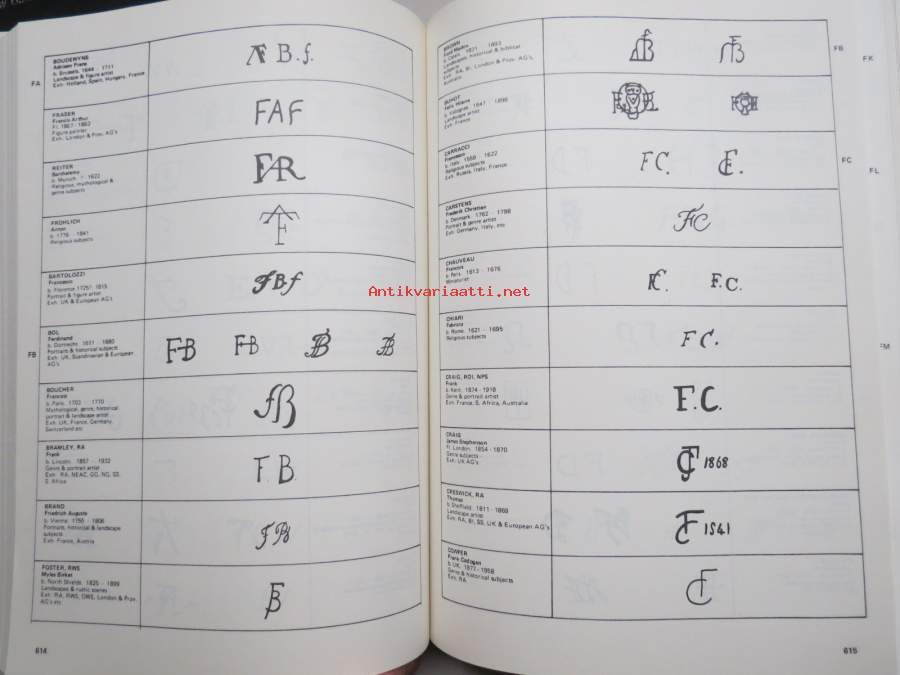 FA
BOUDEWYNS
Adriaen Frans
b. Brussels. 1644 - 1711
Landscape & figure artist
Exh: Holland, Spain, Hungary, France
AF B.f.
FRASER
Francis Arthur
Fl. 1867 - 1883
Figure painter
Exh: London & Prov. AG's
FAF
REITER
Bartholomo
b. Munich. ? - 1622
Religious, mythological &
genre subjects
FAR
FROHLICH
Anton
b. 1776 - 1841
Religious subjects
BARTOLOZZI
Francesco
b. Florence 1725? - 1815
Portrait & figure artist
Exh: UK & European AG's
FBf
FB
BOL
Ferdinand
b. Dortrecht. 1611 - 1680
Portraits & historical subject
Exh: UK, Scandinavian & European
AG's
FB FB FB FB
BOUCHER
Francois
b. Paris. 1703 - 1770
Mythological, genre, historical
portrait & landscape artist
Exh: UK, France, Germany,
Switzerland etc
fB
BRAMLEY, RA
Frank
b. Lincoln. 1857 - 1932
Genre & portrait artist
Exh: RA, NEAC, GG, NG, SS,
S. Africa
F B.
BRAND
Friedrich Auguste
b. Vienna. 1735 - 1806
Portraits, historical & landscape
subjects
Exh: France, Austria
FB
FOSTER, RWS
Myles Birket
b. North Shields. 1825 - 1899
Landscapes & rustic scenes
Exh: RA, RWS, OWS, London & Prov.
AG's etc
FB
614
BROWN
Ford Madox
b. Calais. 1821 - 1893
Landscape, historical & biblical
subjects
Exh: RA, BI, London & Prov. AG's,
Australia
FB
FB
BUHOT
Felix Hilaire
b. Valognes. 1847 - 1898
Landscape artist
Exh: France
CARRACCI
Francesco
b. Italy. 1559 - 1622
Religious subjects
Exh: Russia, Italy, France
FC. FC.
FC
CARSTENS
Frederik Christian
b. Denmark. 1762 - 1798
Portrait & genre artist
Exh: Germany, Italy, etc
FC
CHAUVEAU
Francois
b. Paris. 1613 - 1676
Miniaturist
FC. F.C.
CHIARI
Fabrizio
b. Rome. 1621 - 1695
Religious subjects
F C.
CRAIG, ROI, NPS
Frank
b. Kent. 1874 - 1918
Genre & portrait artist
Exh: France, S. Africa, Australia
F.C.
CRAIG
James Stephenson
Fl. London. 1854 - 1870
Genre subjects
Exh: UK AG's
1868
CRESWICK, RA
Thomas
b. Sheffield. 1811 - 1869
Landscape artist
Exh: RA, BI, SS, UK & European AG's
1541
COWPER
Frank Cadogan
b. UK. 1877 - 1958
Genre & historical subjects
Exh: RA
FC
615
FK
FL
FM
Antikvariaatti.net